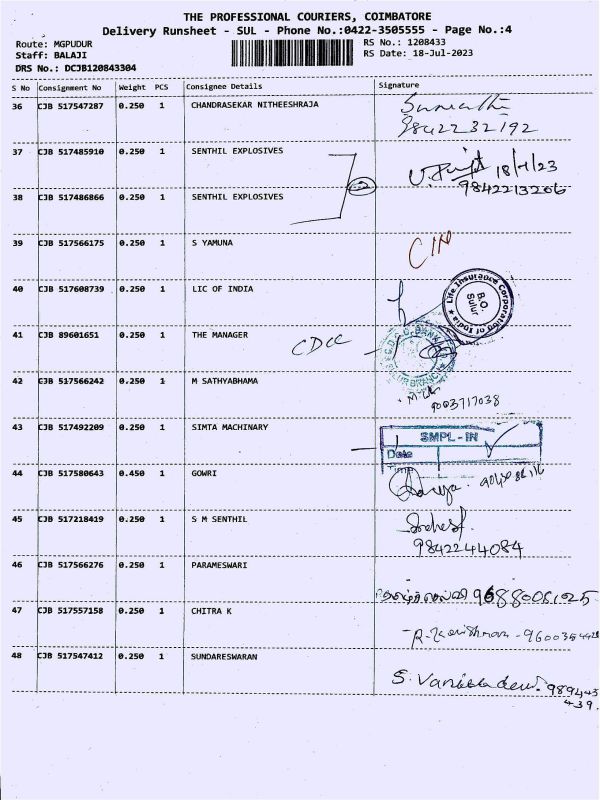 THE PROFESSIONAL COURIERS, COIMBATORE
Delivery Runsheet - SUL - Phone No.:0422-3505555 - Page No.:4
Route: MGPUDUR
RS No.: 1208433
Staff: BALAJI
RS Date: 18-Jul-2023
DRS No.: DCJB120843304
S No Consignment No Weight PCS Consignee Details Signature
36 CJB 517547287 0.250 1 CHANDRASEKAR NITHEESHRAJA
9842232192
37 CJB 517485910 0.250 1 SENTHIL EXPLOSIVES
18/7/23
9842213206
38 CJB 517486866 0.250 1 SENTHIL EXPLOSIVES
39 CJB 517566175 0.250 1 S YAMUNA
40 CJB 517608739 0.250 1 LIC OF INDIA
Life Insurance Corporation of India
B.O.
Sulur
41 CJB 89601651 0.250 1 THE MANAGER
CDCC
42 CJB 517566242 0.250 1 M SATHYABHAMA
9003717038
43 CJB 517492209 0.250 1 SIMTA MACHINARY
SMPL-IN
Date
Time
44 CJB 517580643 0.450 1 GOWRI
45 CJB 517218419 0.250 1 S M SENTHIL
9842244084
46 CJB 517566276 0.250 1 PARAMESWARI
96880061025
47 CJB 517557158 0.250 1 CHITRA K
48 CJB 517547412 0.250 1 SUNDARESWARAN